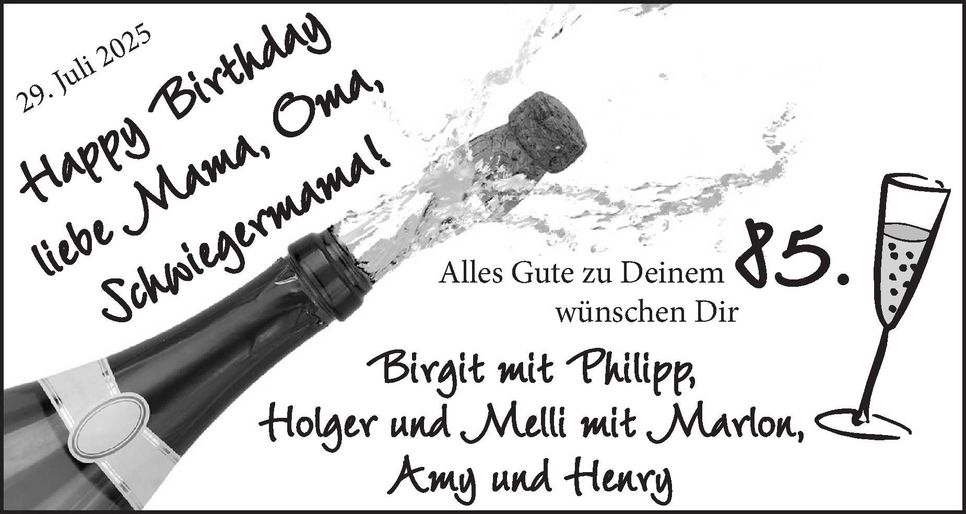 29. Juli 2025
Happy Birthday
liebe Mama, Oma,
Schwiegermama!
Alles Gute zu Deinem 85.
wünschen Dir
Birgit mit Philipp,
Holger und Melli mit Marlon,
Amy und Henry